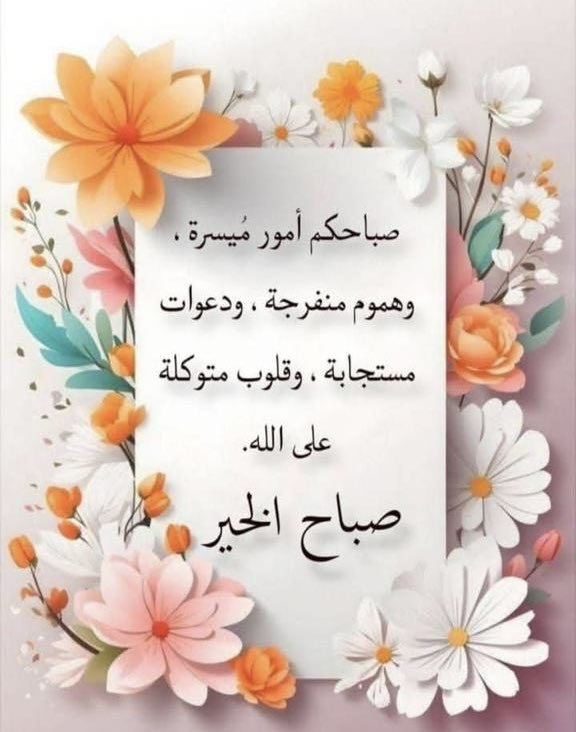 صباحكم أمور مُيسرة ،
وهموم منفرجة ، ودعوات
مستجابة ، وقلوب متوكلة
على الله.
صباح الخير